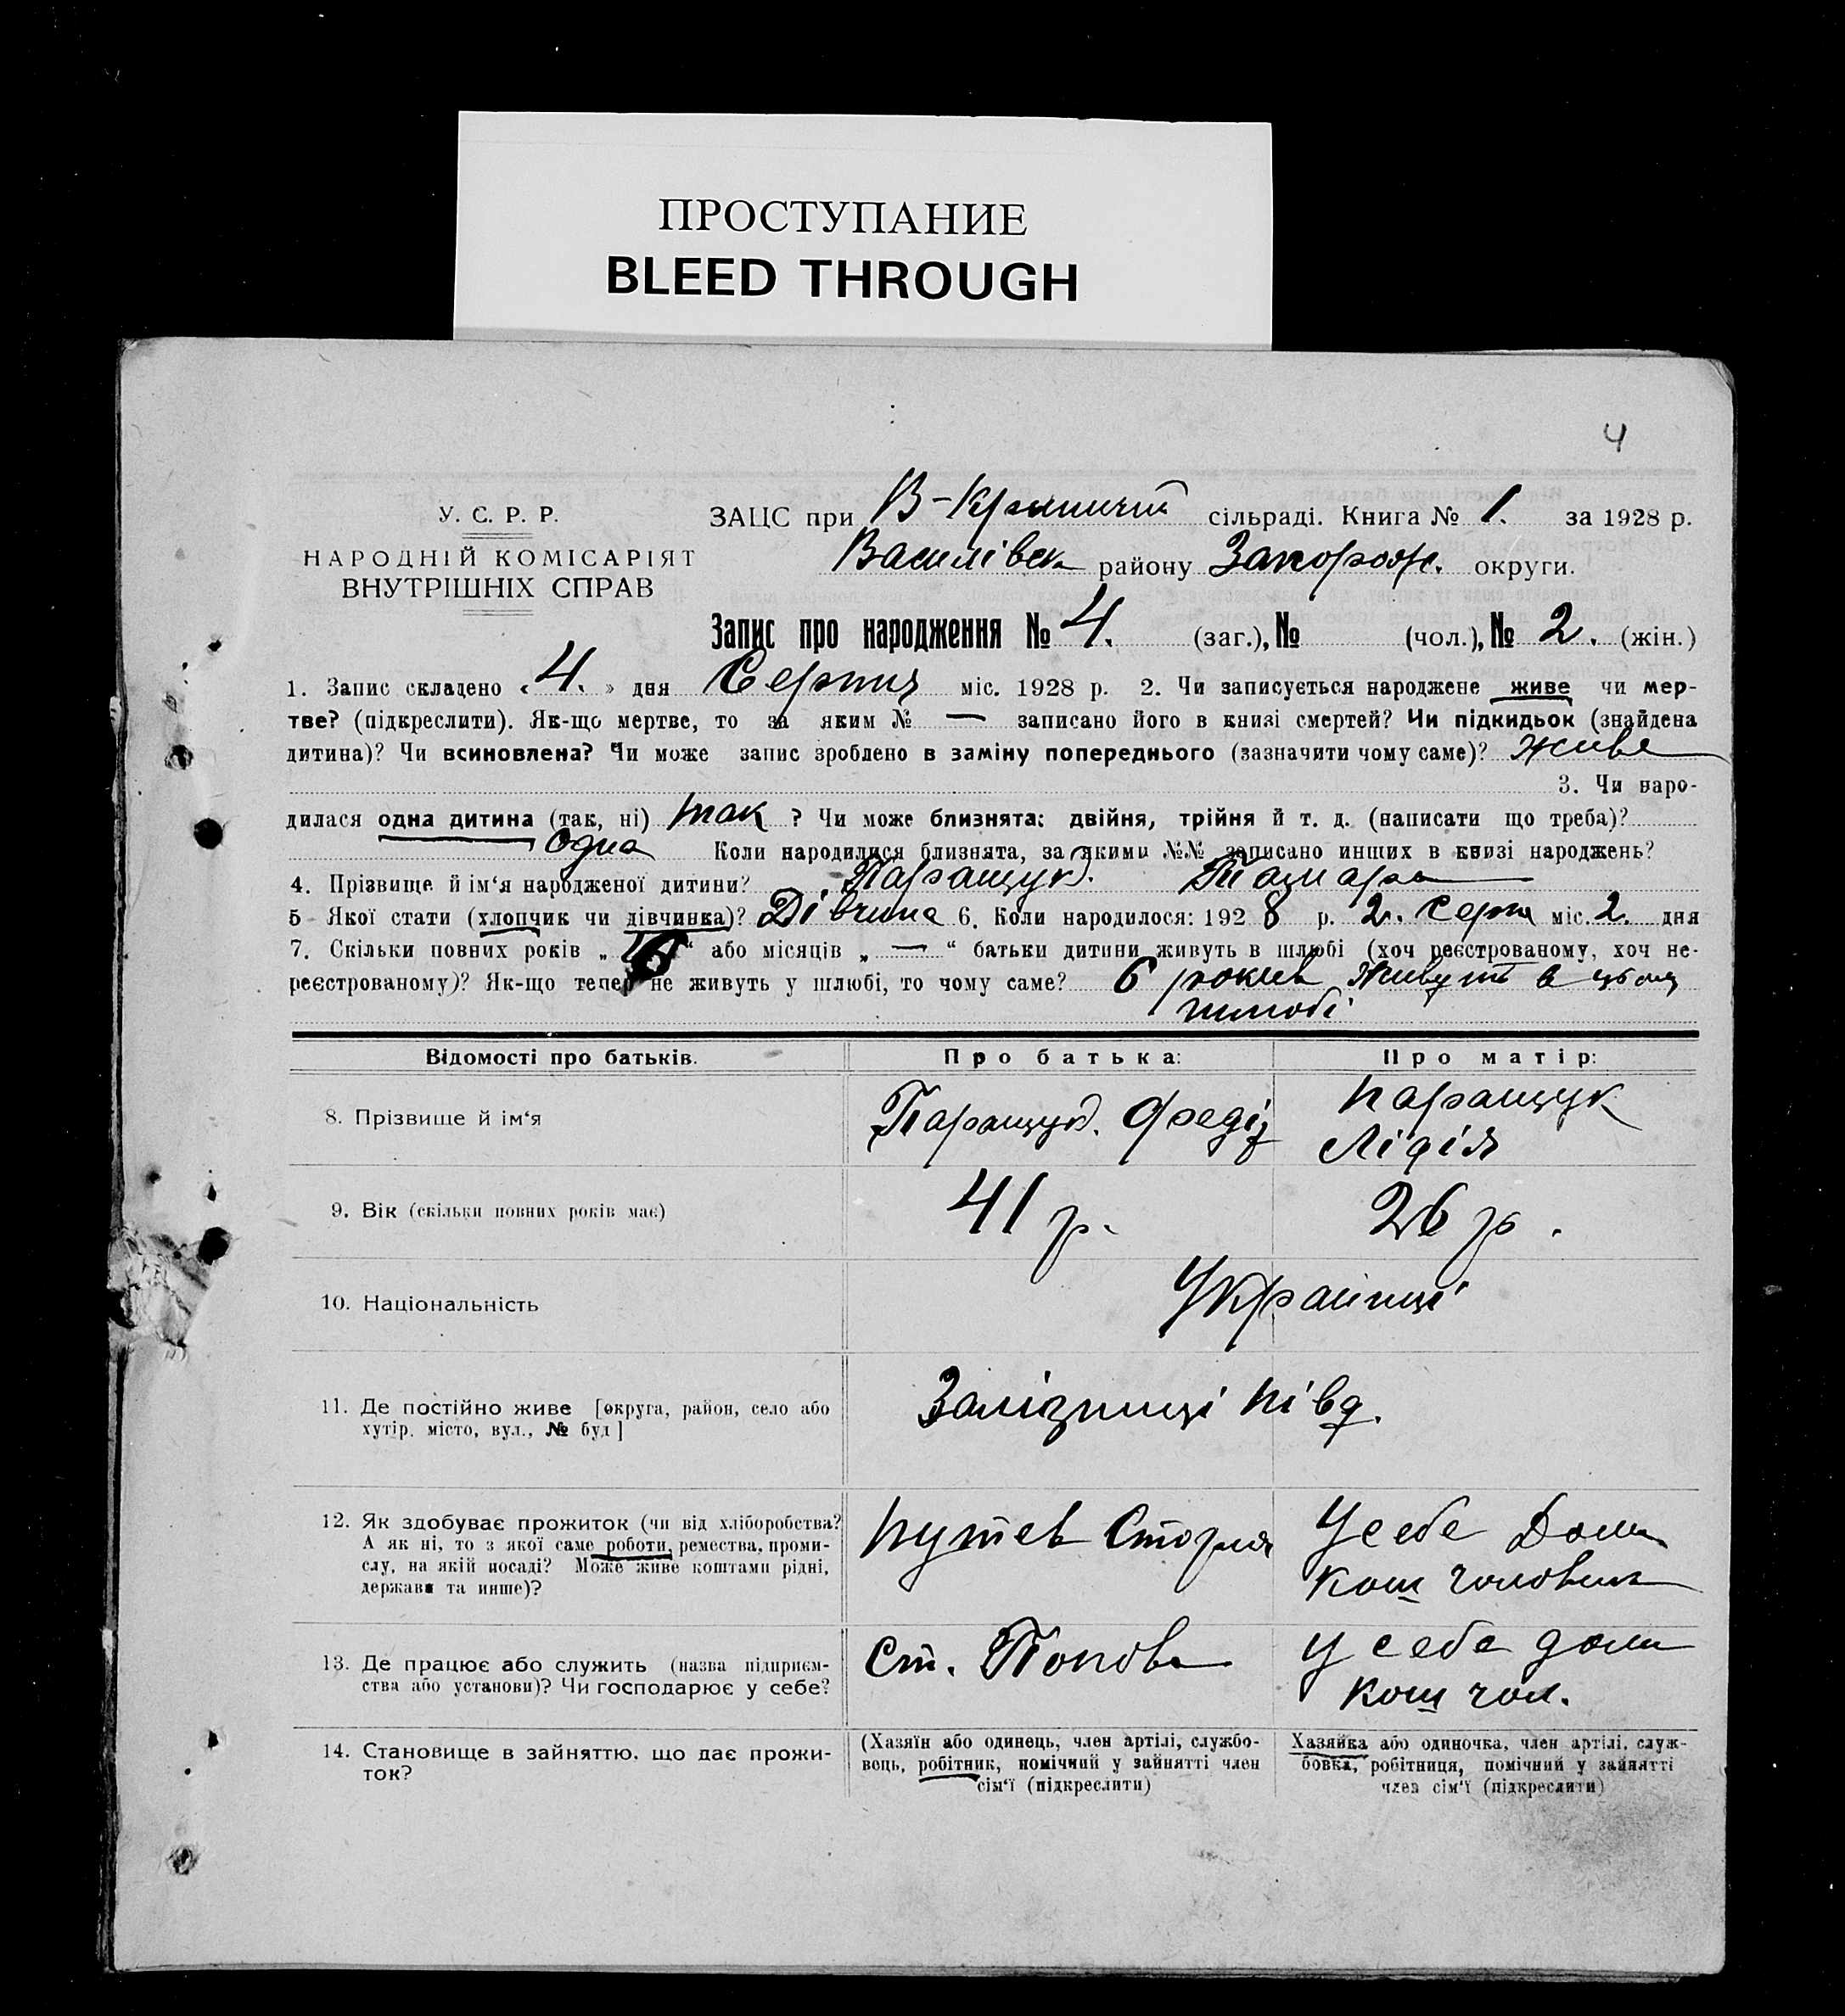 ПРОСТУПАНИЕ
BLEED THROUGH
4
У. С. Р. Р.
НАРОДНІЙ КОМІСАРІЯТ
ВНУТРІШНІХ СПРАВ
ЗАЦС при В-Криничій сільраді. Книга № 1. за 1928 р.
Василівськ району Запорож. округи.
Запис про народження № 4. (заг.), № (чол.), № 2. (жін.)
1. Запис складено « 4. » дня Серпня міс. 1928 р. 2. Чи записується народжене живе чи мер-
тве? (підкреслити). Як-що мертве, то за яким № — записано його в книзі смертей? Чи підкидьок (знайдена
дитина)? Чи всиновлена? Чи може запис зроблено в заміну попереднього (зазначити чому саме)? живе
3. Чи наро-
дилася одна дитина (так, ні) так ? Чи може близнята: двійня, трійня й т. д. (написати що треба)?
одна Коли народилися близнята, за якими №№ записано инших в книзі народжень?
4. Прізвище й ім‘я народженої дитини? Паращук Тамара
5 Якої стати (хлопчик чи дівчинка)? Дівчина 6. Коли народилося: 192 8 р. 2. Серпн міс. 2. дня
7. Скільки повних років „ 6 “ або місяців „ — “ батьки дитини живуть в шлюбі (хоч реєстрованому, хоч не-
реєстрованому)? Як-що тепер не живуть у шлюбі, то чому саме? 6 років живуть в цьому
шлюбі
Відомості про батьків. Про батька: Про матір:
8. Прізвище й ім‘я Паращук. Федір Паращук
Лідія
9. Вік (скільки повних років має) 41 р. 26 р.
10. Національність Українці
11. Де постійно живе [округа, район, село або
хутір. місто, вул., № буд] Залізниці Півд.
12. Як здобуває прожиток (чи від хліборобства?
А як ні, то з якої саме роботи, ремества, проми-
слу, на якій посаді? Може живе коштами рідні,
держави та инше)? Путев Сторож У себе Дома
Кош чоловіка
13. Де працює або служить (назва підприєм-
ства або установи)? Чи господарює у себе? Ст. Попова У себе дома
Кош чол.
14. Становище в зайняттю, що дає прожи-
ток?
(Хазяїн або одинець, член артілі, службо-
вець, робітник, помічний у зайнятті член
сім‘ї (підкреслити)
Хазяйка або одиночка, член артілі, служ-
бовка, робітниця, помічний у зайнятті
член сім‘ї (підкреслити)